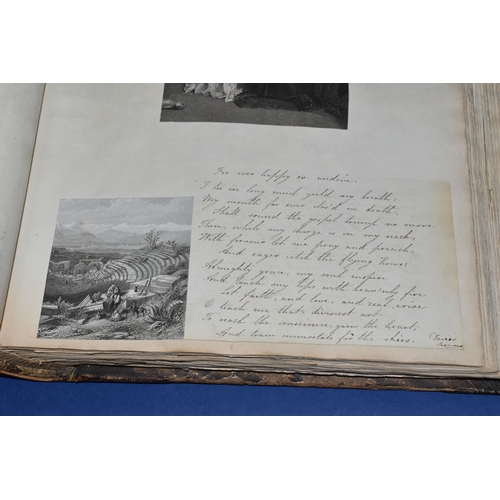 For ever happy or undone.
I too ere long must yield my breath,
My mouth for ever clos'd in death,
Shall sound the gospel trump no more
Then, while my charge is in my reach,
With fervour let me pray and preach,
And eager catch the flying hours
Almighty grace, my soul inspire
And touch my lips with heav'nly fire
Let faith, and love, and zeal arise
O teach me that divinest art
To reach the conscience, gain the heart
And train immortals for the skies.